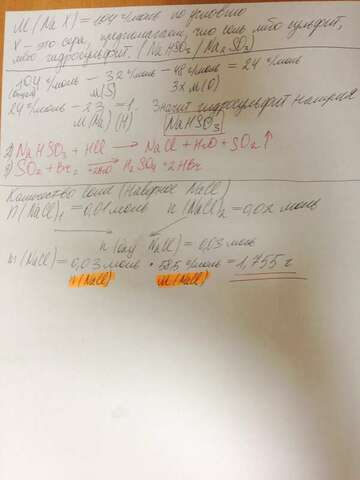 M(NaX) = 104 г/моль по условию
X – это сера, предполагаем, что соль либо сульфит,
либо гидросульфит. (NaHSO3/Na2SO3)
104 г/моль – 32 г/моль – 48 г/моль = 24 г/моль
M(S) 3×M(O)
24 г/моль – 23 = 1. Значит гидросульфит натрия
M(Na) (H) NaHSO3
1) NaHSO3 + HCl → NaCl + H2O + SO2↑
2) SO2 + Br2 +2H2O → H2SO4 + 2HBr
Количество соли (Наверное NaCl)
n(NaCl)1 = 0,01 моль n(NaCl)2 = 0,02 моль
n(общ NaCl) = 0,03 моль
m(NaCl) = 0,03 моль · 58,5 г/моль = 1,755 г
n(NaCl) M(NaCl)